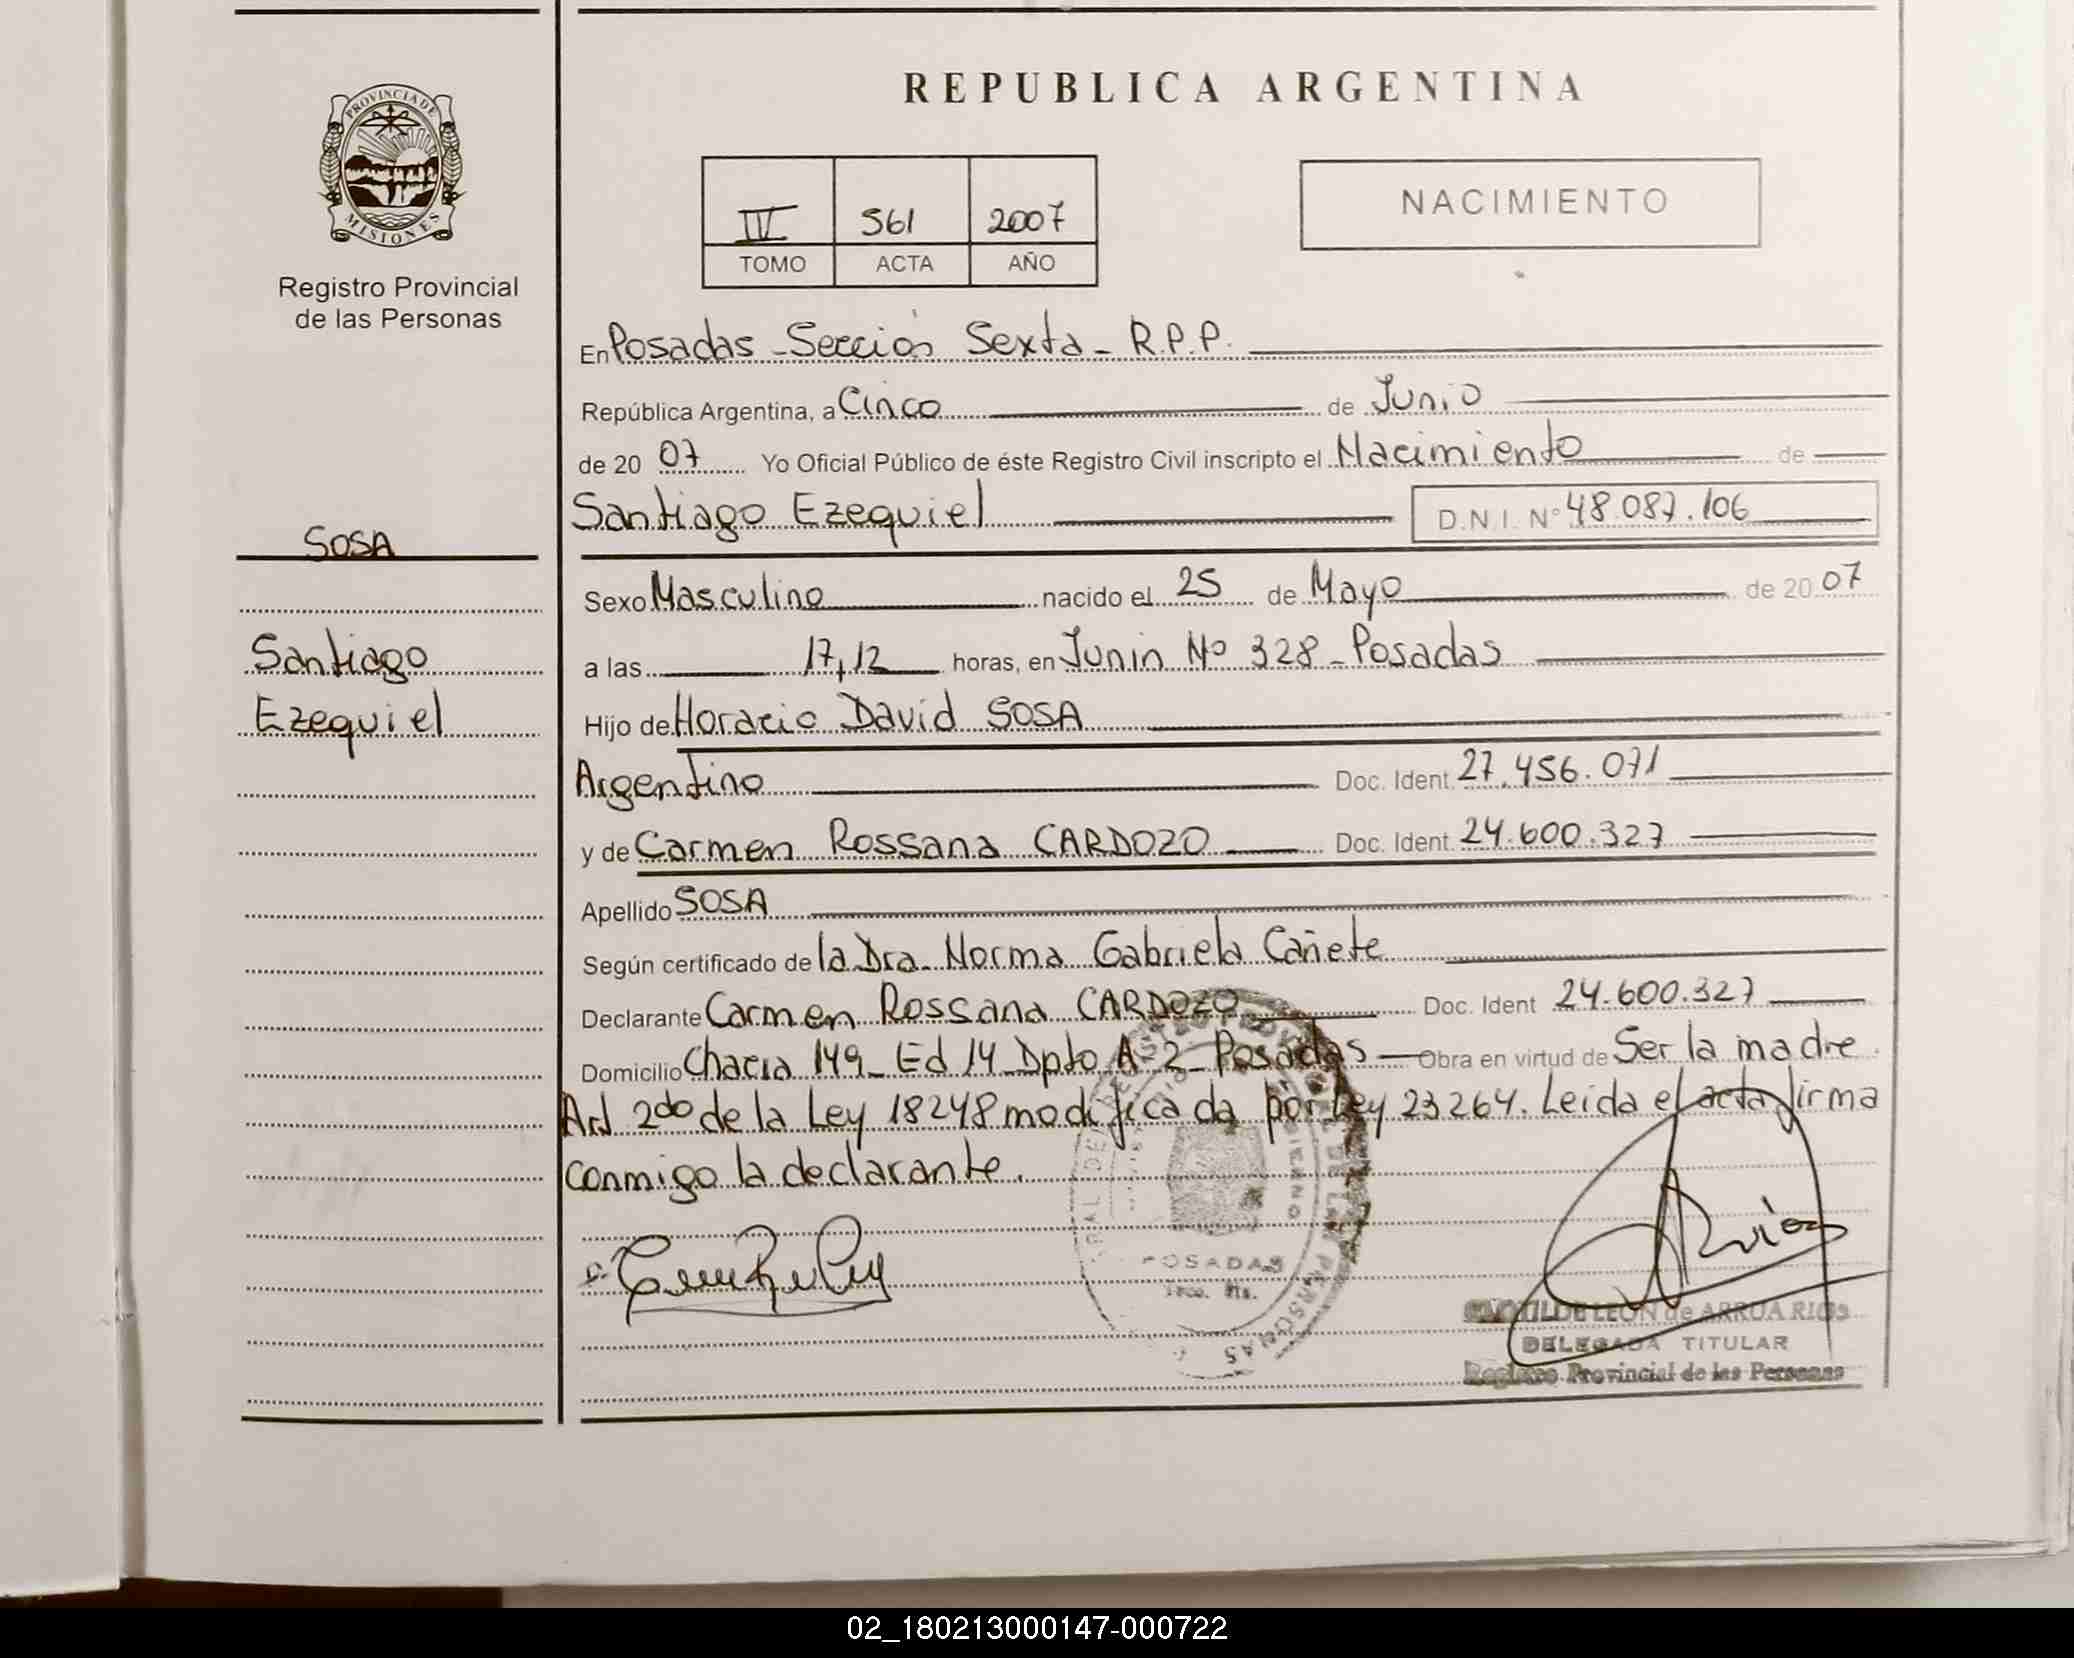 REPUBLICA ARGENTINA
PROVINCIA DE
MISIONES
Registro Provincial
de las Personas
IV 561 2007
TOMO ACTA AÑO
NACIMIENTO
En Posadas - Sección Sexta - R.P.P.
República Argentina, a Cinco de Junio
de 20 07 Yo Oficial Público de éste Registro Civil inscripto el Nacimiento de
Santiago Ezequiel D.N.I. Nº 48.087.106
SOSA
Sexo Masculino nacido el 25 de Mayo de 20 07
Santiago
a las 17,12 horas, en Junin Nº 328 - Posadas
Ezequiel
Hijo de Horacio David SOSA
Argentino Doc. Ident. 27.456.071
y de Carmen Rossana CARDOZO Doc. Ident. 24.600.327
Apellido SOSA
Según certificado de la Dra. Norma Gabriela Cañete
Declarante Carmen Rossana CARDOZO Doc. Ident 24.600.327
Domicilio Chacra 149 - Ed 14 Dpto A 2 - Posadas - Obra en virtud de Ser la madre.
Art 2do de la Ley 18248 modificada por Ley 23264. Leida el acta firma
conmigo la declarante.
POSADAS
CLOTILDE LEON de ARRUA RIOS
DELEGADA TITULAR
Registro Provincial de las Personas
02_180213000147-000722